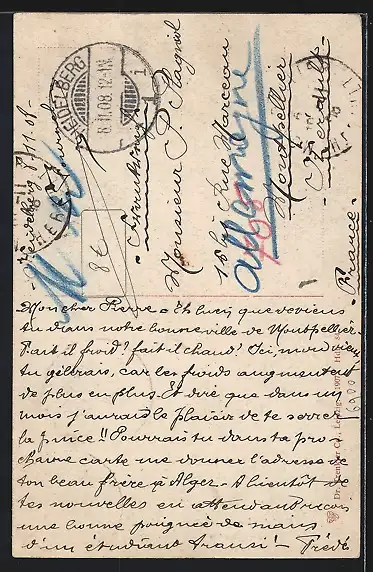 HEIDELBERG
8.11.08. 12-1N.
1
Heidelberg 7.11.08.
8 €
Monsieur P. Plagniol
18 Rue Marceau
Montpellier
Hérault
France
Allemagne
Mon cher Pierre = Eh bien que deviens
tu dans notre bonne ville de Montpellier
Fait il froid? fait il chaud? Ici, mon vieux
tu gélerais, car les froids augmentent
de plus en plus. Et dire que dans un
mois j'aurai le plaisir de te serrer
la pince!! Pourrais tu dans ta pro
chaine carte me donner l'adresse de
ton beau frère à Alger. A bientôt de
tes nouvelles en attendant reçois
une bonne poignée de mains
d'un étudiant transi! – Frédé